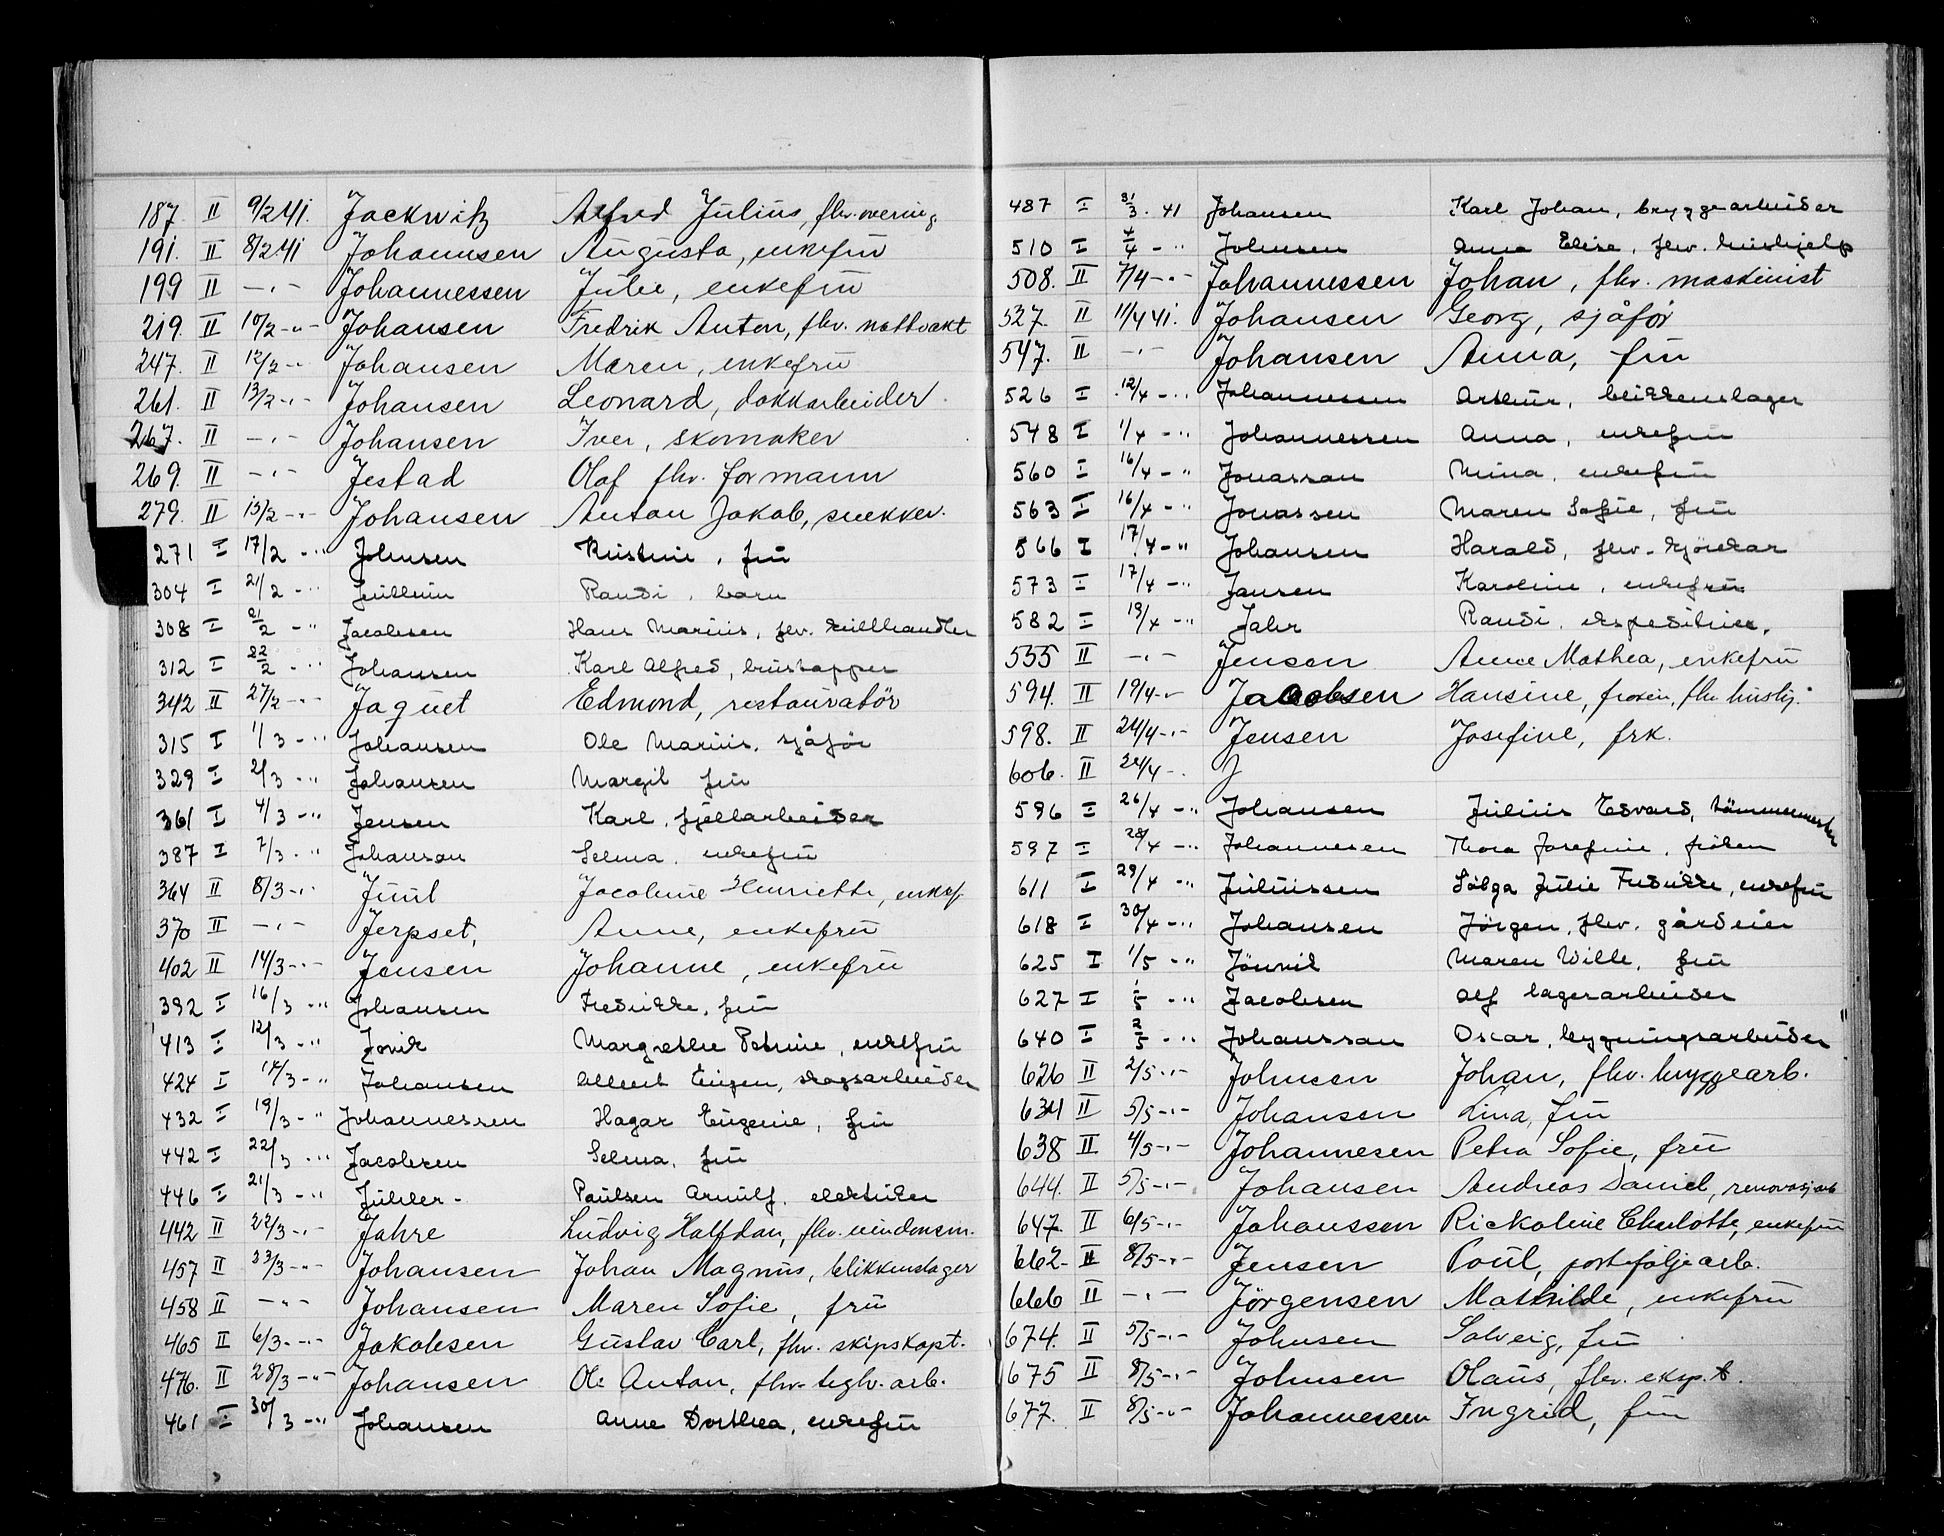 187. II 9/2 41. Jackwitz Alfred Julius, fhv. overing.
191. II 8/2 41 Johannsen Augusta, enkefrü
199 II -"- Johannessen Julie, enkefrü
219. II 10/2 -"- Johansen Fredrik Anton, fhv. nattvakt
247. II 12/2 -"- Johansen Maren, enkefrü
261. II 13/2 -"- Johansen Leonard, dokkarbeider.
267. II -"- Johansen Iver, skomaker
269. II -"- Jestad Olaf fhv. formann
279. II 13/2 -"- Johansen Anton Jakob, snekker.
271 I 17/2 -"- Johnsen Kristine, frü
304 I 21/2 -"- Randi, barn
308 I 21/2 -"- Jacobsen Hans Marius, fhv.
312 I 22/2 -"- Johansen Karl Alfred,
342 II 27/2 -"- Jaquet Edmond, restauratör
315 I 1/3 -"- Johansen Ole Marius, sjåför
329 I 2/3 -"- Johansen Margit frü
361 I 4/3 -"- Jensen Karl, fjellarbeider
387 I 7/3 -"- Johanson Selma, enkefrü
364 II 8/3 -"- Juul Jacobine Henriette, enkef.
370 II -"- Jerpset, Anne, enkefrü
402 II 14/3 -"- Jensen Johanne, enkefrü
392 I 16/3 -"- Johansen Fredrikke, frü
413 I 12/3 -"- Jonik Margrethe Petrine, enkefrü
424 I 14/3 -"- Johansen Albert Eugen, skogsarbeider
432 I 19/3 -"- Johannessen Hagar Eugenie, frü
442 I 22/3 -"- Jacobsen Selma, frü
446 I 21/3 -"- Juhler - Paulsen Arnulf, elektriker
442 II 22/3 -"- Jahre Ludvig Halfdan, fhv. eiendomsm.
457 II 23/3 -"- Johansen Johan Magnus, blikkenslager
458 II -"- Johansen Maren Sofie, frü
465 II 6/3 -"- Jakobsen Gustav Carl, fhv. skipskapt.
476. II 28/3 -"- Johansen Ole Anton, fhv. teglv. arb.
461 I 30/3 -"- Johansen Anne Dorthea, enkefrü
487 I 31/3. 41 Johansen Karl Johan, bryggearbeider
510 I 4/4 -"- Johnsen Anna Elise, fhv. hüshjelp
508. II 7/4 -"- Johannessen Johan, fhv. maskinist
527. II 11/4 41. Johansen Georg, sjåför
547. II -"- Johansen Anna, frü
526 I 12/4 -"- Johannessen Arthur, blikkenslager
548 I 1/4 -"- Johannessen Anna, enkefrü
560 I 16/4 -"- Jonasson Mina, enkefrü
563 I 16/4 -"- Jonassen Maren Sofie, frü
566 I 17/4 -"- Johansen Harald, fhv. kjörekar
573 I 17/4 -"- Jansen Karoline, enkefrü
582 I 19/4 -"- Jahr Randi, ekspeditrise.
555 II -"- Jensen Anne Mathea, enkefrü
594. II 19/4 -"- Jacobsen Hansine, fröken, fhv. hushj.
598. II 24/4 -"- Jensen Josefine, frk.
606. II 24/4 -"- J
596 I 26/4 -"- Johansen Julius Edvard, tömmermester
597 I 28/4 -"- Johannesen Thora Josefine, fröken
611 I 29/4 -"- Juliussen Solga Julie Fredrikke, enkefrü
618 I 30/4 -"- Johansen Jörgen, fhv. gårdeier
625 I 1/5 -"- Maren Wille, frü
627 I 1/5 -"- Jacobsen Alf lagerarbeider
640 I 2/5 -"- Johansson Oscar, bygningsarbeider
626 II 2/5 -"- Johnsen Johan, fhv. bryggearb.
634 II 5/5 -"- Johansen Lina, frü
638 II 4/5 -"- Johannesen Petra Sofie, frü
644. II 5/5 -"- Johansen Andreas Daniel, renovasj.arb
647. II 6/5 -"- Johanssen Rickoline Charlotte, enkefrü
662- II 8/5 -"- Jensen Poul, porteföljearb.
666 II -"- Jörgensen Mathilde, enkefrü
674. II 5/5 -"- Johnsen Solveig, frü
675 II 8/5 -"- Johnsen Olaüs, fhv. eksp.
677. II 8/5 -"- Johannessen Ingrid, frü